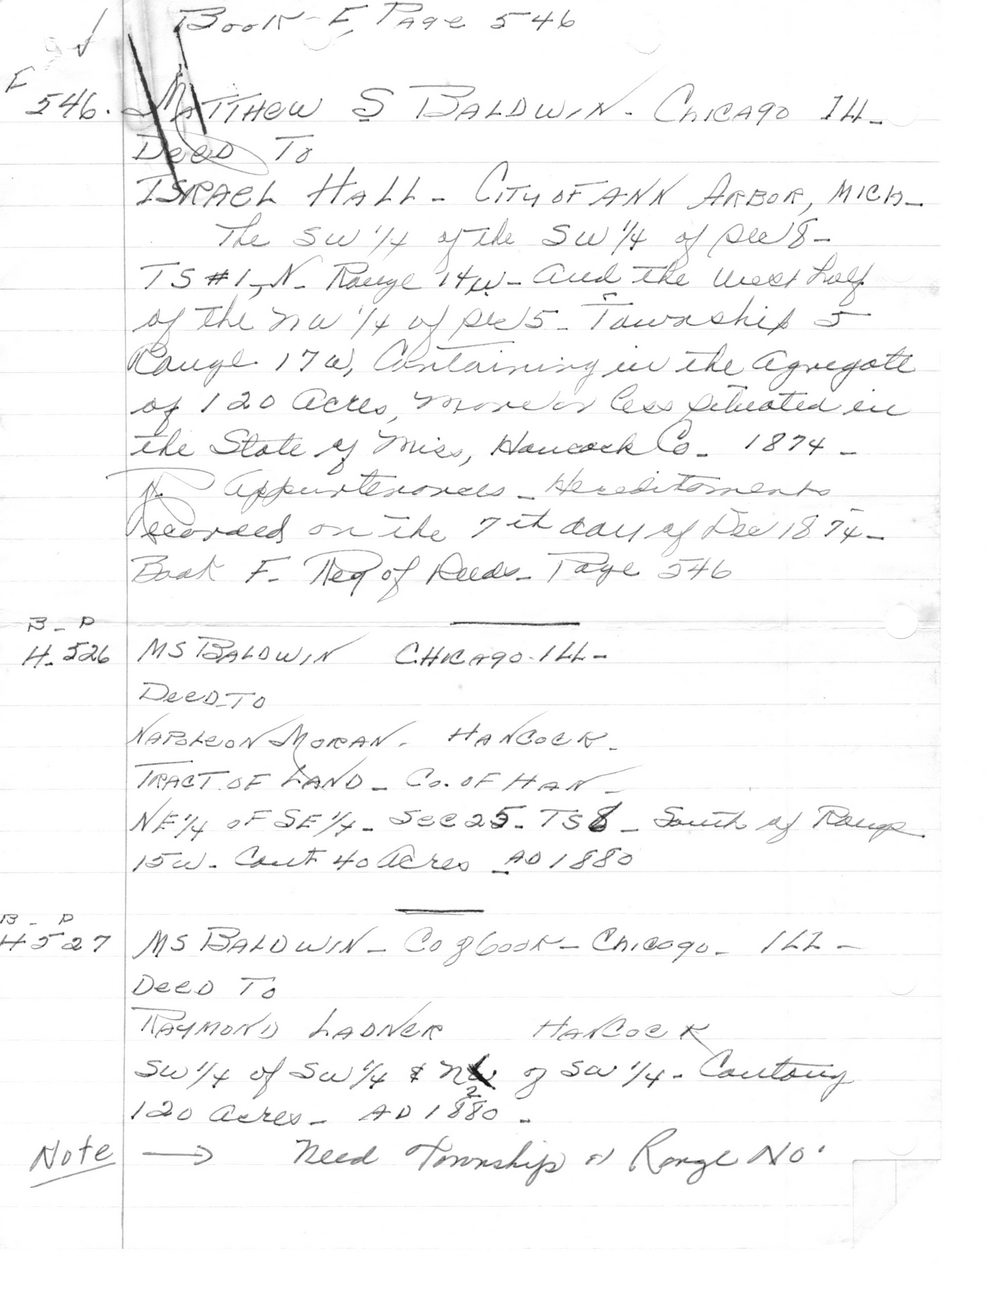 Book - F, Page 546
F
546. Matthew S Baldwin - Chicago Ill -
Deed To
Israel Hall - City of Ann Arbor, Mich -
The SW 1/4 of the SW 1/4 of Sec 8 -
TS #1, N. Range 14w - and the west half
of the NW 1/4 of Sec 5 - Township 5
Range 17W, Containing in the Agregate
of 120 Acres, more or less situated in
the State of Miss, Hancock Co - 1874 -
Appurtenances - Hereditaments
Recorded on the 7th day of Dec 1874 -
Book F - Reg of Deeds - Page 546
B - P
H - 526 MS Baldwin Chicago - Ill -
Deed To
Napoleon Moran - Hancock -
Tract of Land - Co. of Han -
NE 1/4 of SE 1/4 - Sec 25 - TS 8 - South of Range
15w - Cont 40 Acres - AD 1880
B - P
H 527 MS Baldwin - Co of Cook - Chicago - Ill -
Deed To
Raymond Ladner Hancock
SW 1/4 of SW 1/4 & of SW 1/4 -
120 Acres - AD 1880 -
Note → Need Township or Range No.